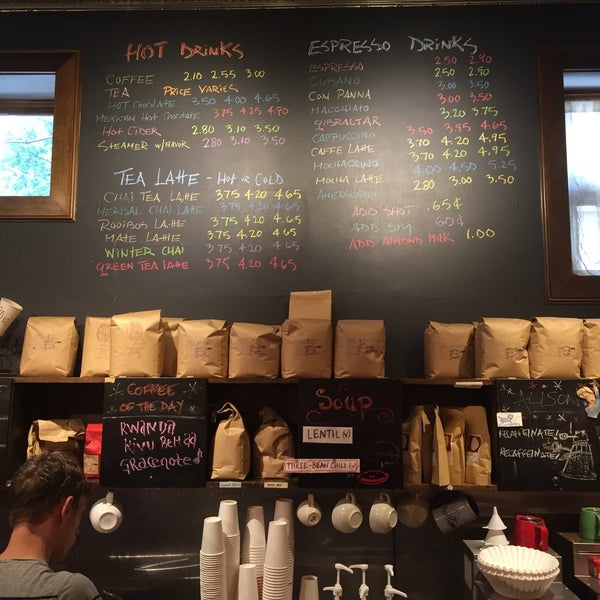 HOT DRINKS
COFFEE 2.10 2.55 3.00
TEA PRICE VARIES
HOT CHOCOLATE 3.50 4.00 4.65
MEXICAN HOT CHOCOLATE 3.75 4.25 4.90
HOT CIDER 2.80 3.10 3.50
STEAMER W/FLAVOR 2.80 3.10 3.50
TEA LATTE - HOT OR COLD
CHAI TEA LATTE 3.75 4.20 4.65
HERBAL CHAI LATTE 3.75 4.20 4.65
ROOIBOS LATTE 3.75 4.20 4.65
MATE LATTE 3.75 4.20 4.65
WINTER CHAI 3.75 4.20 4.65
GREEN TEA LATTE 3.75 4.20 4.65
ESPRESSO DRINKS
ESPRESSO 2.50 2.90
CUBANO 2.50 2.90
CON PANNA 3.00 3.50
MACCHIATO 3.00 3.50
GIBRALTAR 3.20 3.75
CAPPUCCINO 3.50 3.95 4.65
CAFFE LATTE 3.70 4.20 4.95
MOCHACCINO 3.70 4.20 4.95
MOCHA LATTE 4.00 4.50 5.25
AMERICANO 2.80 3.00 3.50
ADD SHOT .65¢
ADD SOY 60¢
ADD ALMOND MILK 1.00
COFFEE
OF THE DAY
RWANDA
KIVU BELTGA
GRACENOTE
SOUP
LENTIL (V)
THREE-BEAN CHILI (V)
ALISON
DECAFFEINATE!
RECAFFEINATE!